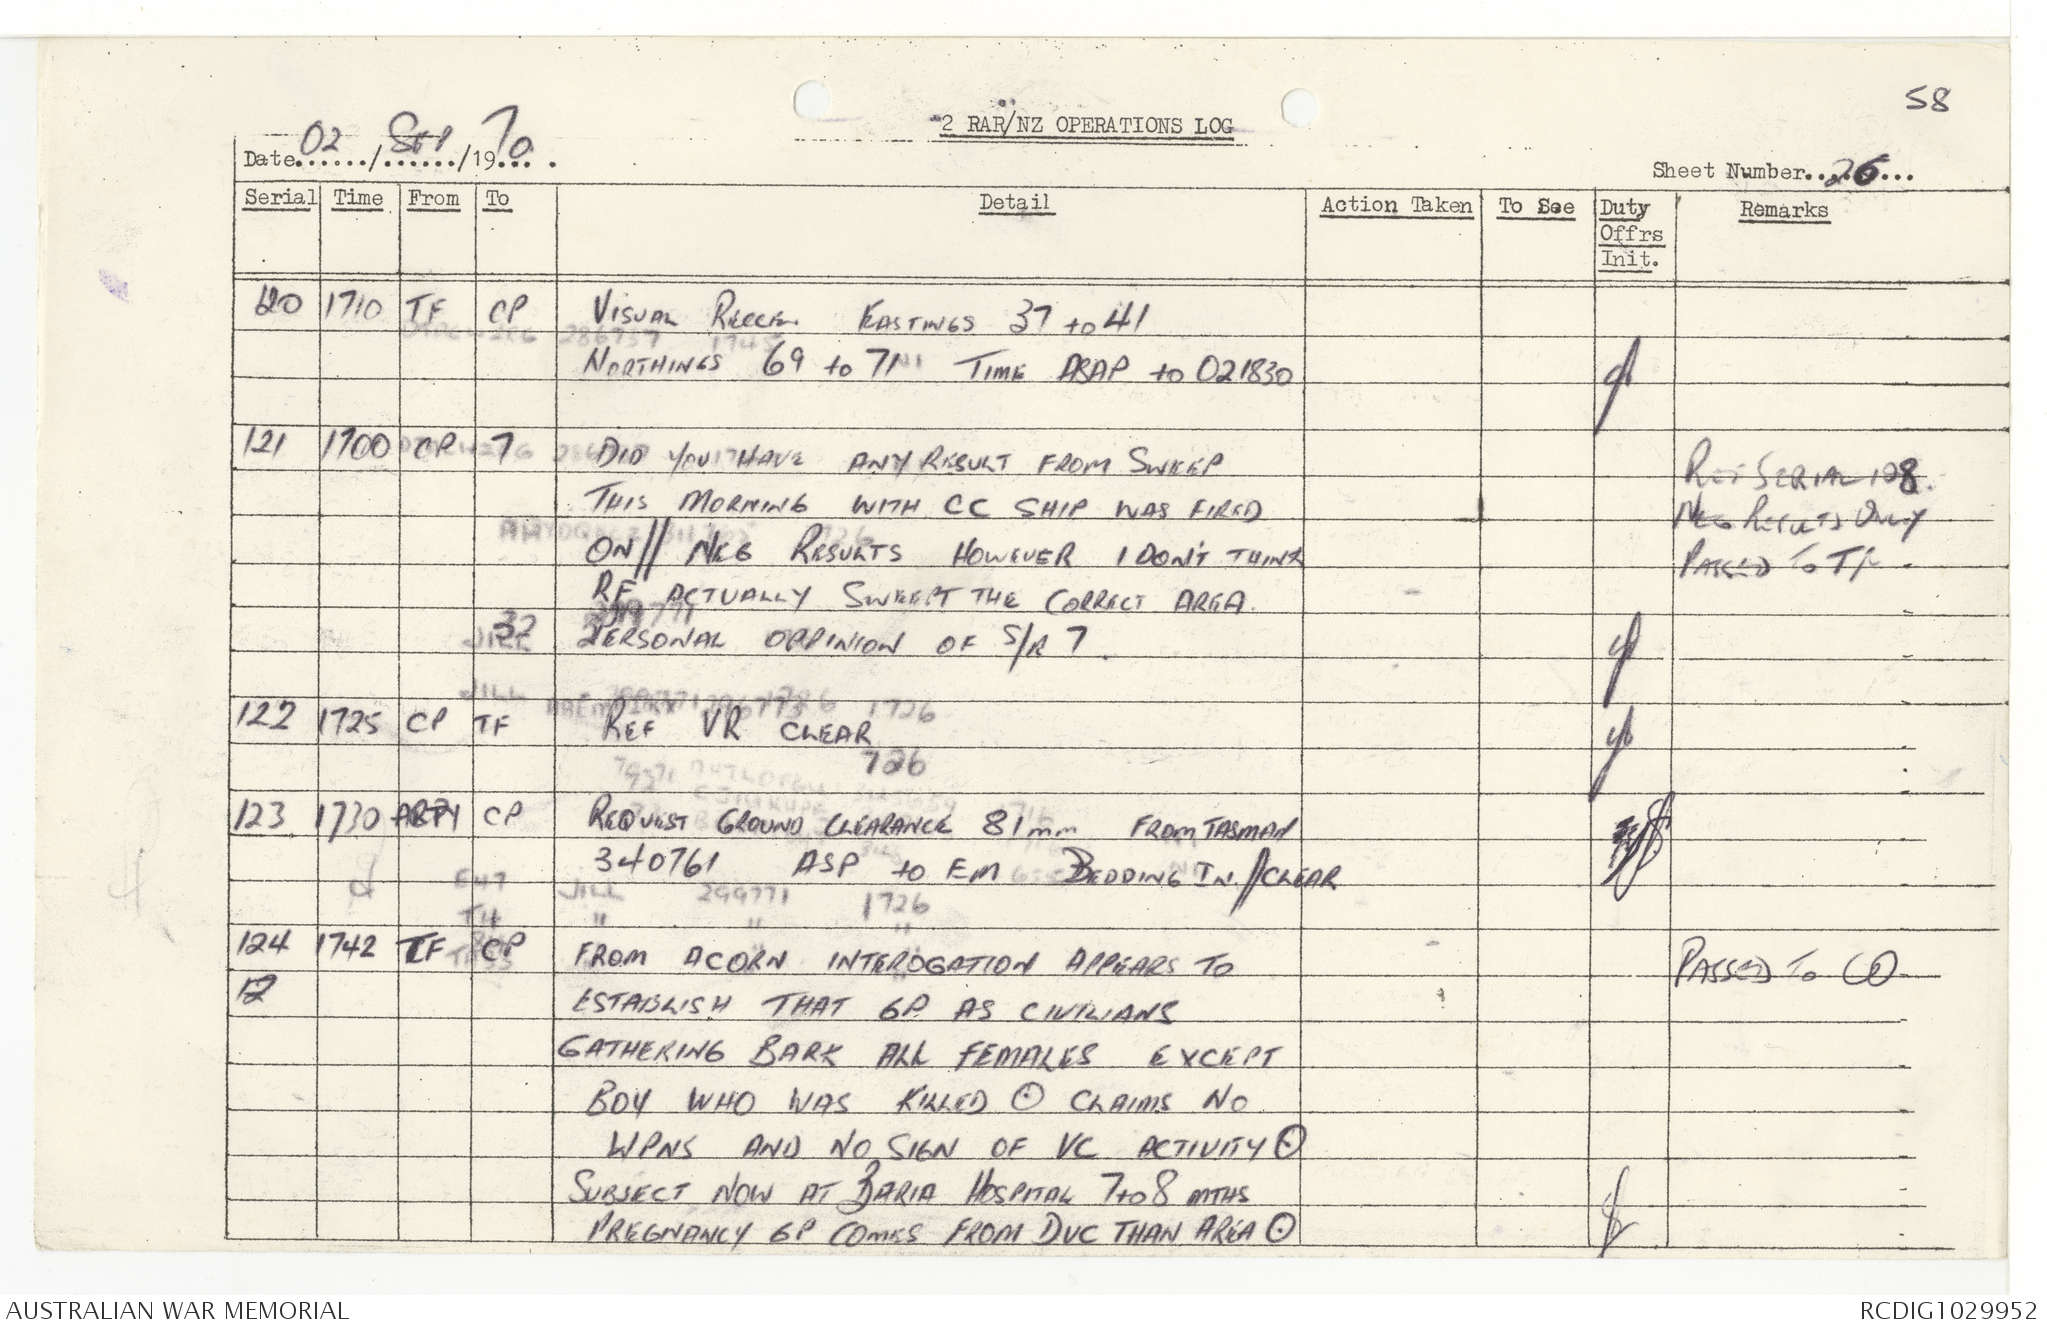 58
2 RAR/NZ OPERATIONS LOG
Date 02 / SEP / 1970
Sheet Number 26
Serial Time From To Detail Action Taken To See Duty Offrs Init. Remarks
120 1710 TF CP VISUAL RECCE. EASTINGS 37 to 41
NORTHINGS 69 to 71 TIME ASAP to 021830
121 1700 CP 7 DID YOU HAVE ANY RESULT FROM SWEEP
THIS MORNING WITH CC SHIP WAS FIRED
ON // NEG RESULTS HOWEVER I DON'T THINK
RF ACTUALLY SWEEPT THE CORRECT AREA.
PERSONAL OPPINION OF S/R 7.
REF SERIAL 108.
NEG RESULTS ONLY
PASSED TO TF
122 1725 CP TF REF VR CLEAR
726
123 1730 ARTY CP REQUEST GROUND CLEARANCE 81mm FROM TASMAN
340761 ASP to EM BEDDING IN // CLEAR
JILL 299771 1726
124 1742 TF CP FROM ACORN INTEROGATION APPEARS TO
12 ESTABLISH THAT GP AS CIVILIANS
GATHERING BARK ALL FEMALES EXCEPT
BOY WHO WAS KILLED ⊙ CLAIMS NO
WPNS AND NO SIGN OF VC ACTIVITY ⊙
SUBJECT NOW AT BARIA HOSPITAL 7 to 8 MTHS
PREGNANCY GP COMES FROM DUC THAN AREA ⊙
PASSED TO CO
AUSTRALIAN WAR MEMORIAL
RCDIG1029952